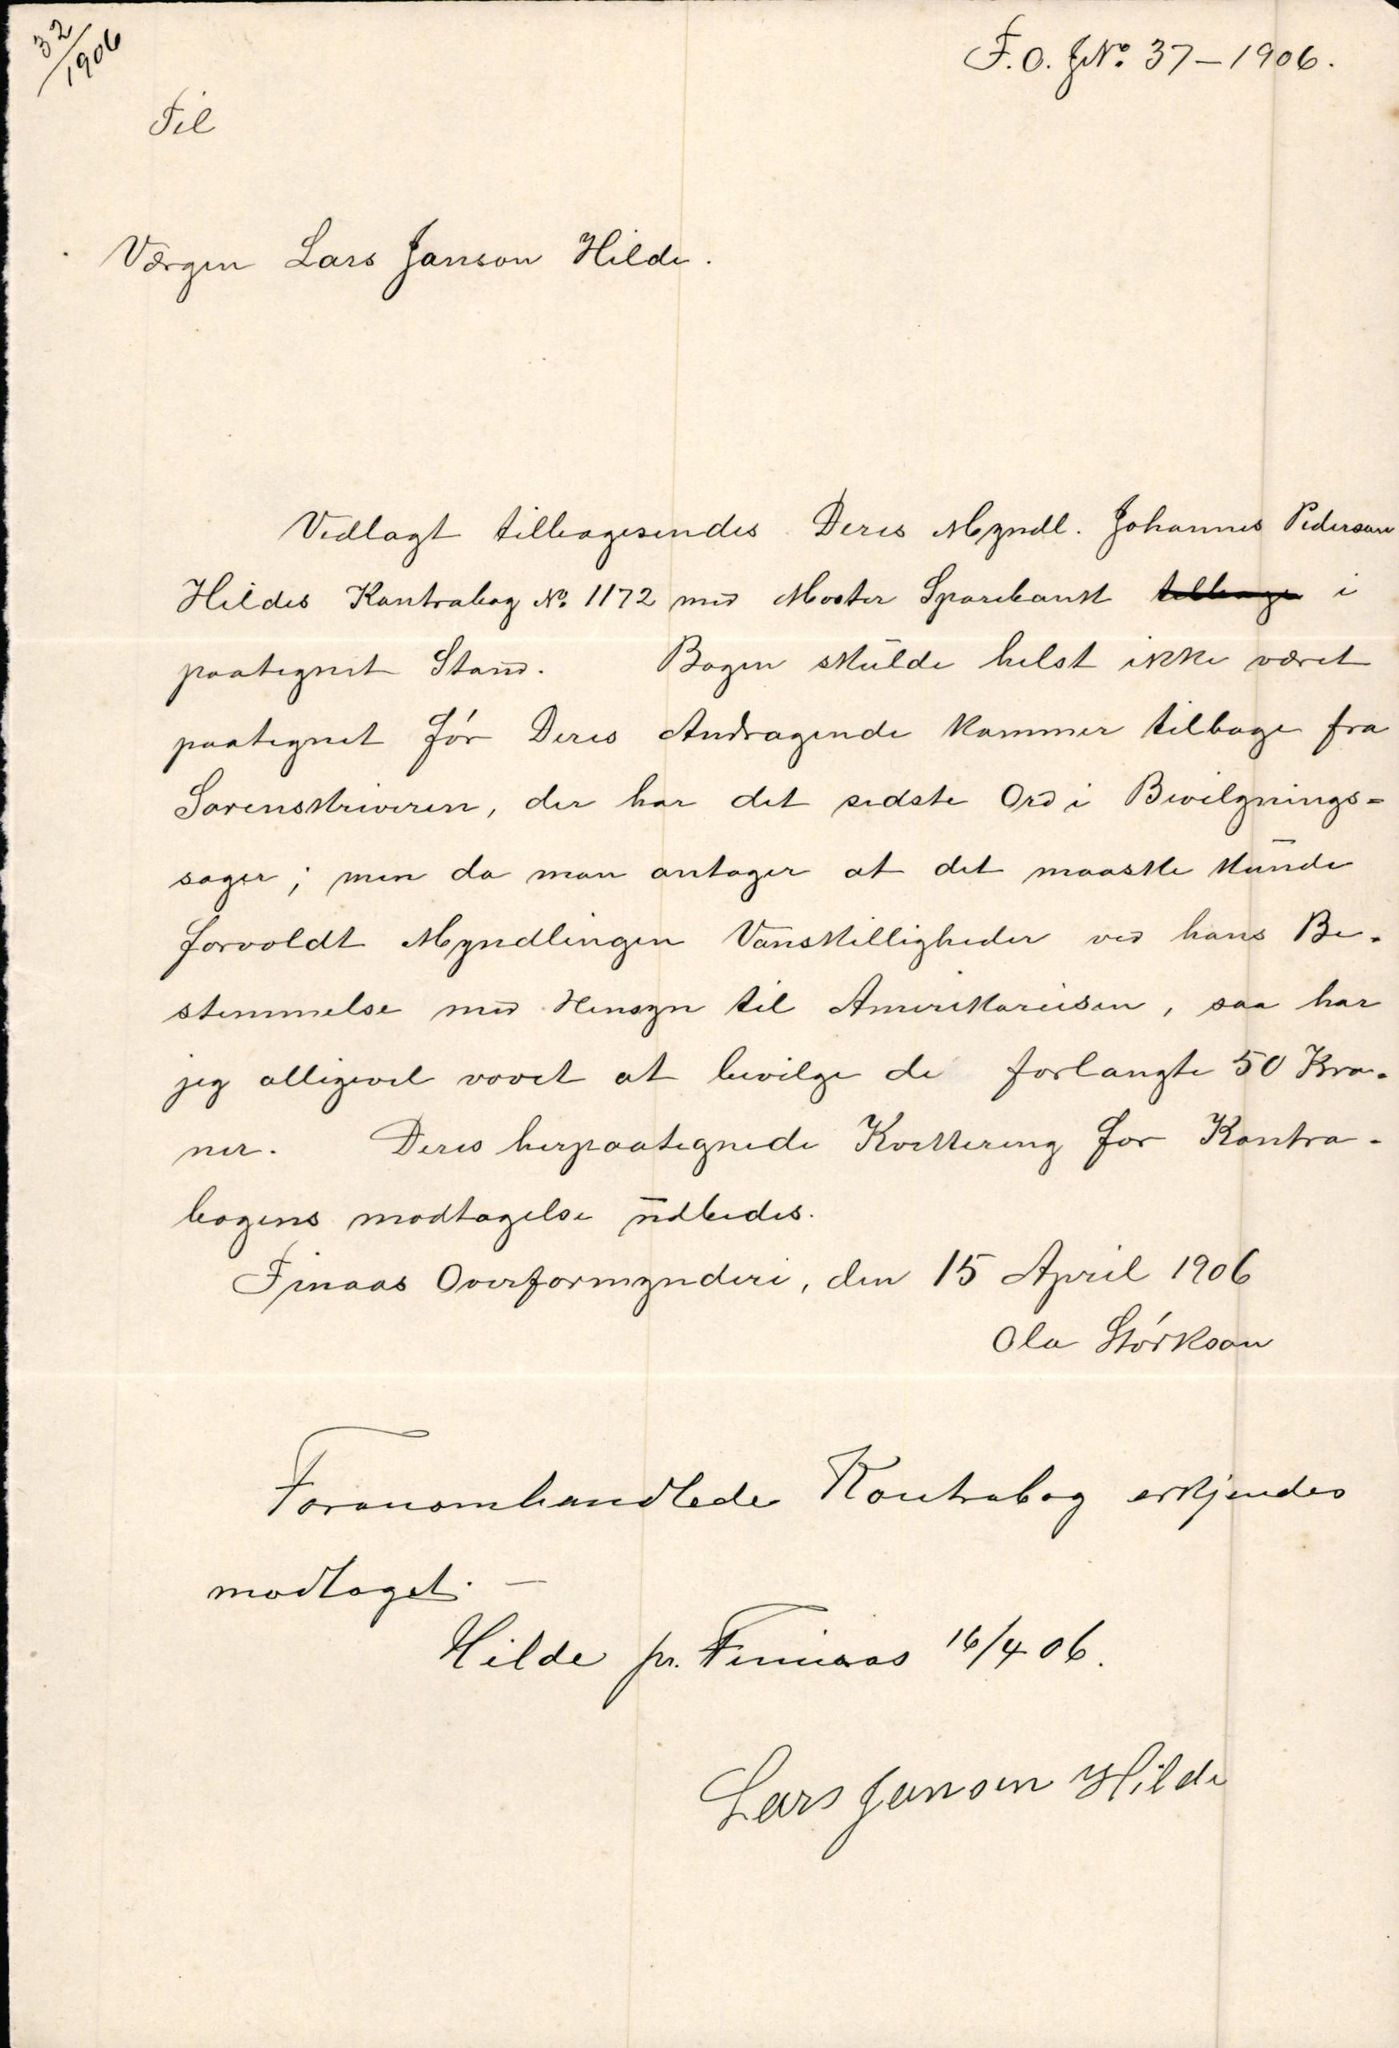 32/1906
F.O. JNo. 37-1906.
Til
Værgen Lars Janson Hilde.
Vedlagt tilbagesendes Deres Myndl. Johannes Pederson
Hildes Kontrabog No. 1172 med Moster Sparebank tilbage i
paategnet Stand. Bogen skulde helst ikke været
paategnet før Deres Andragende kommer tilbage fra
Sorenskriveren, der har det sidste Ord i Bevilgnings=
sager; men da man antager at det maaske kunde
forvoldt Myndlingen Vanskelligheder ved hans Be-
stemmelse med Hensyn til Amerikareisen, saa har
jeg alligevel vovet at bevilge de forlangte 50 Kro-
ner. Deres herpaategnede Kvittering for Kontra-
bogens modtagelse udbedes.
Finaas Overformynderi, den 15 April 1906
Ola Størkson
Foranomhandlede Kontrabog erkjendes
modtaget. —
Hilde pr. Finnaas 16/4 06.
Lars Janson Hilde